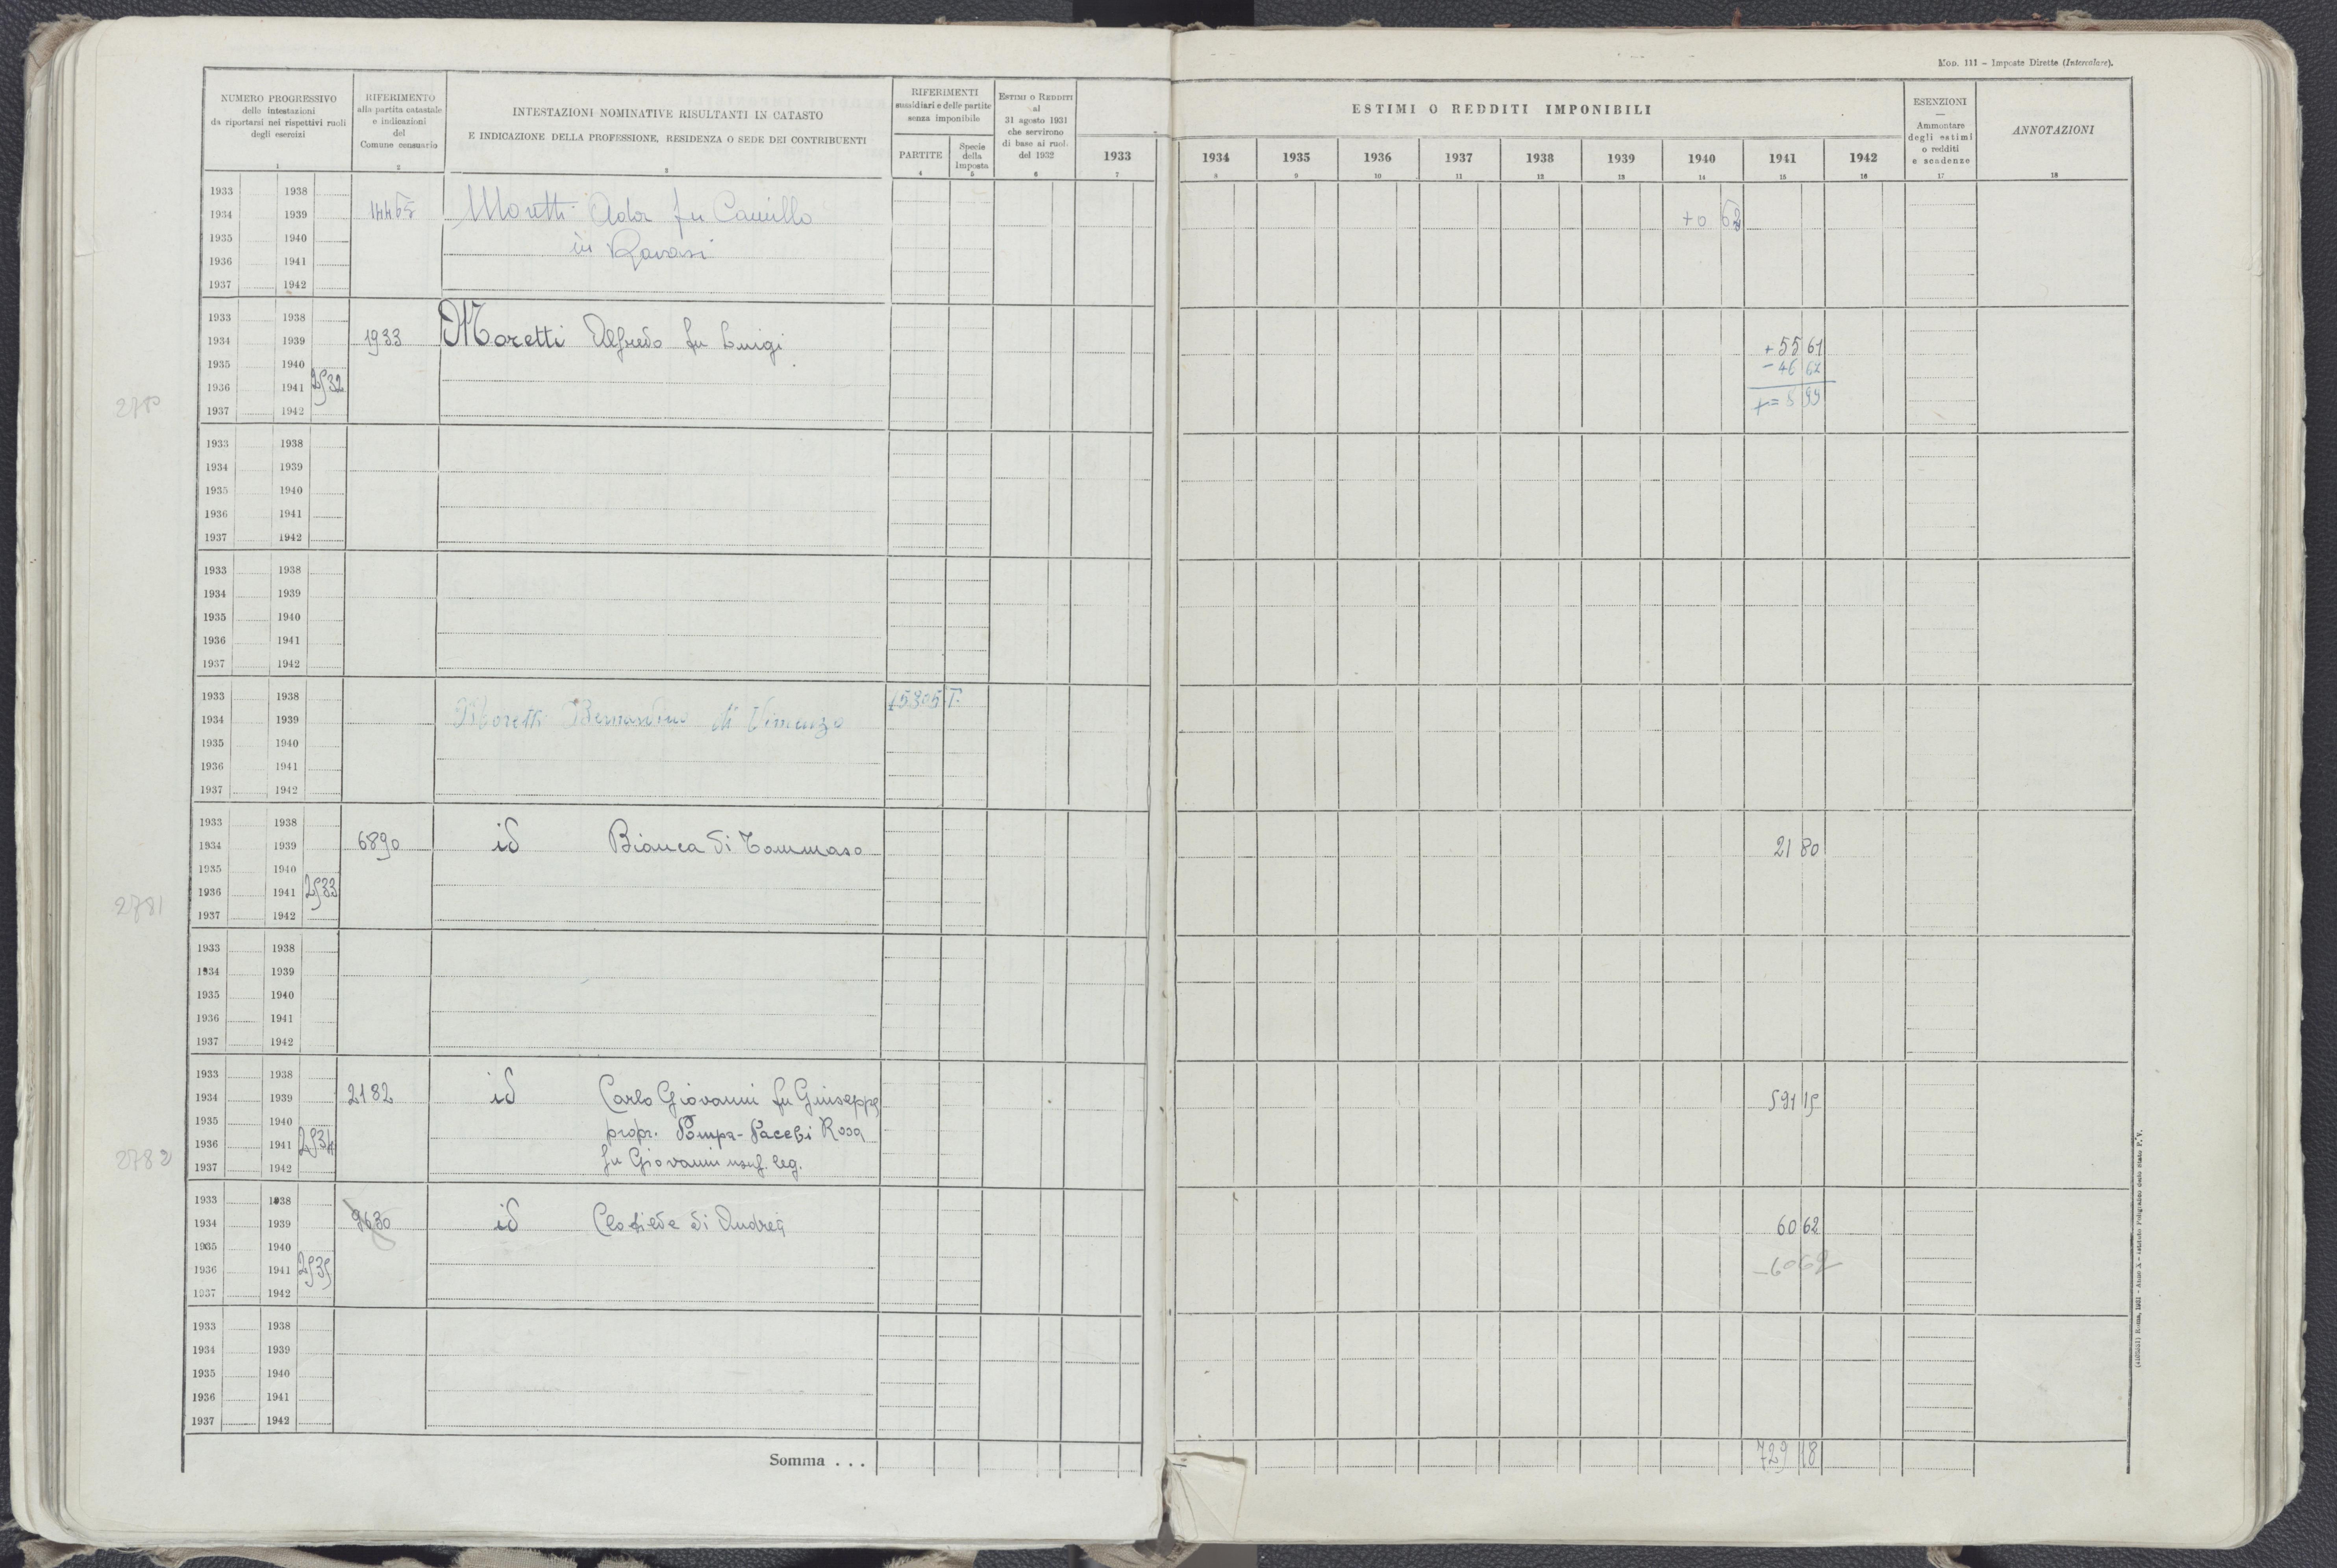 Mod. 111 - Imposte Dirette (Intercalare).
NUMERO PROGRESSIVO
delle intestazioni
da riportarsi nei rispettivi ruoli
degli esercizi
1
RIFERIMENTO
alla partita catastale
e indicazioni
del
Comune censuario
2
INTESTAZIONI NOMINATIVE RISULTANTI IN CATASTO
E INDICAZIONE DELLA PROFESSIONE, RESIDENZA O SEDE DEI CONTRIBUENTI
3
RIFERIMENTI
sussidiari e delle partite
senza imponibile
PARTITE
4
Specie
della
Imposta
5
ESTIMI O REDDITI
al
31 agosto 1931
che servirono
di base ai ruoli
del 1932
6
ESTIMI O REDDITI IMPONIBILI
1933 1934 1935 1936 1937 1938 1939 1940 1941 1942
7 8 9 10 11 12 13 14 15 16
ESENZIONI
—
Ammontare
degli estimi
o redditi
e scadenze
17
ANNOTAZIONI
18
1933 1938
1934 1939 14465 Moretti Ada fu Camillo +0 62
1935 1940 in Ravasi
1936 1941
1937 1942
1933 1938
1934 1939 1933 Moretti Alfredo fu Luigi +55 61
1935 1940 -46 62
1936 1941 2532 += 8 99
2780
1937 1942
1933 1938
1934 1939
1935 1940
1936 1941
1937 1942
1933 1938
1934 1939
1935 1940
1936 1941
1937 1942
1933 1938 15305 T.
1934 1939 Moretti Bernardino di Vincenzo
1935 1940
1936 1941
1937 1942
1933 1938
1934 1939 6890 id Bianca di Tommaso 21 80
1935 1940
1936 1941 2533
2781
1937 1942
1933 1938
1934 1939
1935 1940
1936 1941
1937 1942
1933 1938
1934 1939 2182 id Carlo Giovanni fu Giuseppe 591 15
1935 1940 propr. Pompa-Pacchi Rosa
1936 1941 2534
2782
1937 1942 fu Giovanni usuf. leg.
1933 1938
1934 1939 9630 id Clotilde di Andrea 60 62
1935 1940
1936 1941 2535 -60 62
1937 1942
1933 1938
1934 1939
1935 1940
1936 1941
1937 1942
Somma . . . 729 18